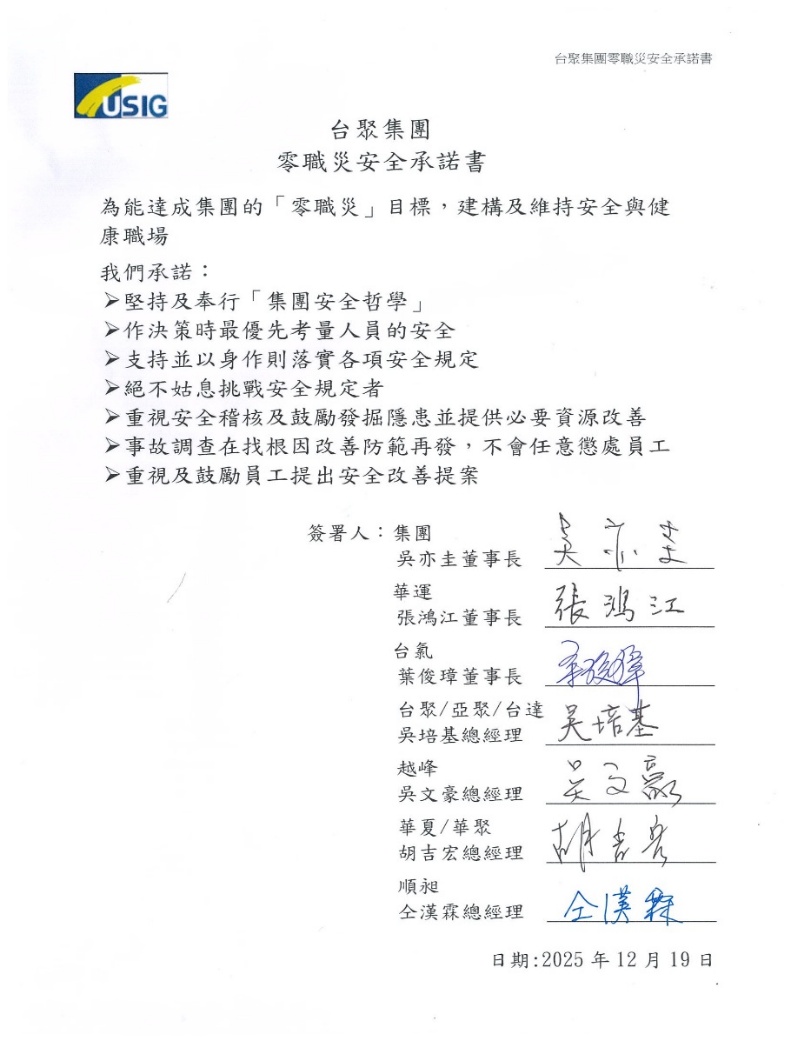 台聚集團零職災安全承諾書
USIG
台聚集團
零職災安全承諾書
為能達成集團的「零職災」目標，建構及維持安全與健
康職場
我們承諾：
➢堅持及奉行「集團安全哲學」
➢作決策時最優先考量人員的安全
➢支持並以身作則落實各項安全規定
➢絕不姑息挑戰安全規定者
➢重視安全稽核及鼓勵發掘隱患並提供必要資源改善
➢事故調查在找根因改善防範再發，不會任意懲處員工
➢重視及鼓勵員工提出安全改善提案
簽署人：集團
吳亦圭董事長 吳亦圭
華運
張鴻江董事長 張鴻江
台氯
葉俊瑋董事長
台聚/亞聚/台達
吳培基總經理 吳培基
越峰
吳文豪總經理 吳文豪
華夏/華聚
胡吉宏總經理 胡吉宏
順昶
仝漢霖總經理 仝漢霖
日期:2025 年 12 月 19 日